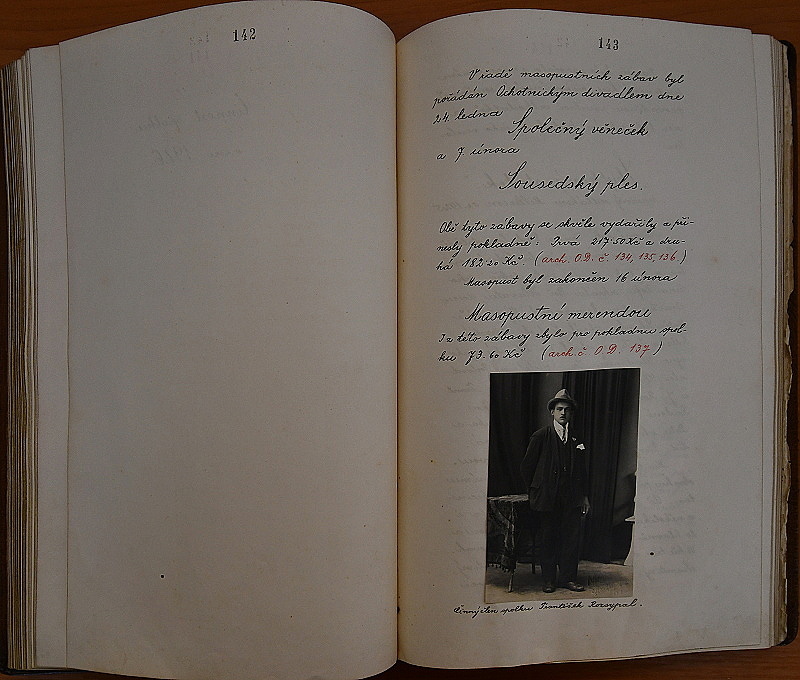 142
143
V řadě masopustních zábav byl
pořádán Ochotnickým divadlem dne
24. ledna Společný věneček
a 7. února
Sousedský ples.
Obě tyto zábavy se skvěle vydařily a při-
nesly pokladně: Prvá 217·50 Kč a dru-
há 182·20 Kč (arch. O.D. č. 134, 135, 136)
Masopust byl zakončen 16 února
Masopustní merendou
I z této zábavy zbylo pro pokladnu spol-
ku 73·60 Kč (arch. č O.D. 137)
Činný člen spolku František Rozsypal.